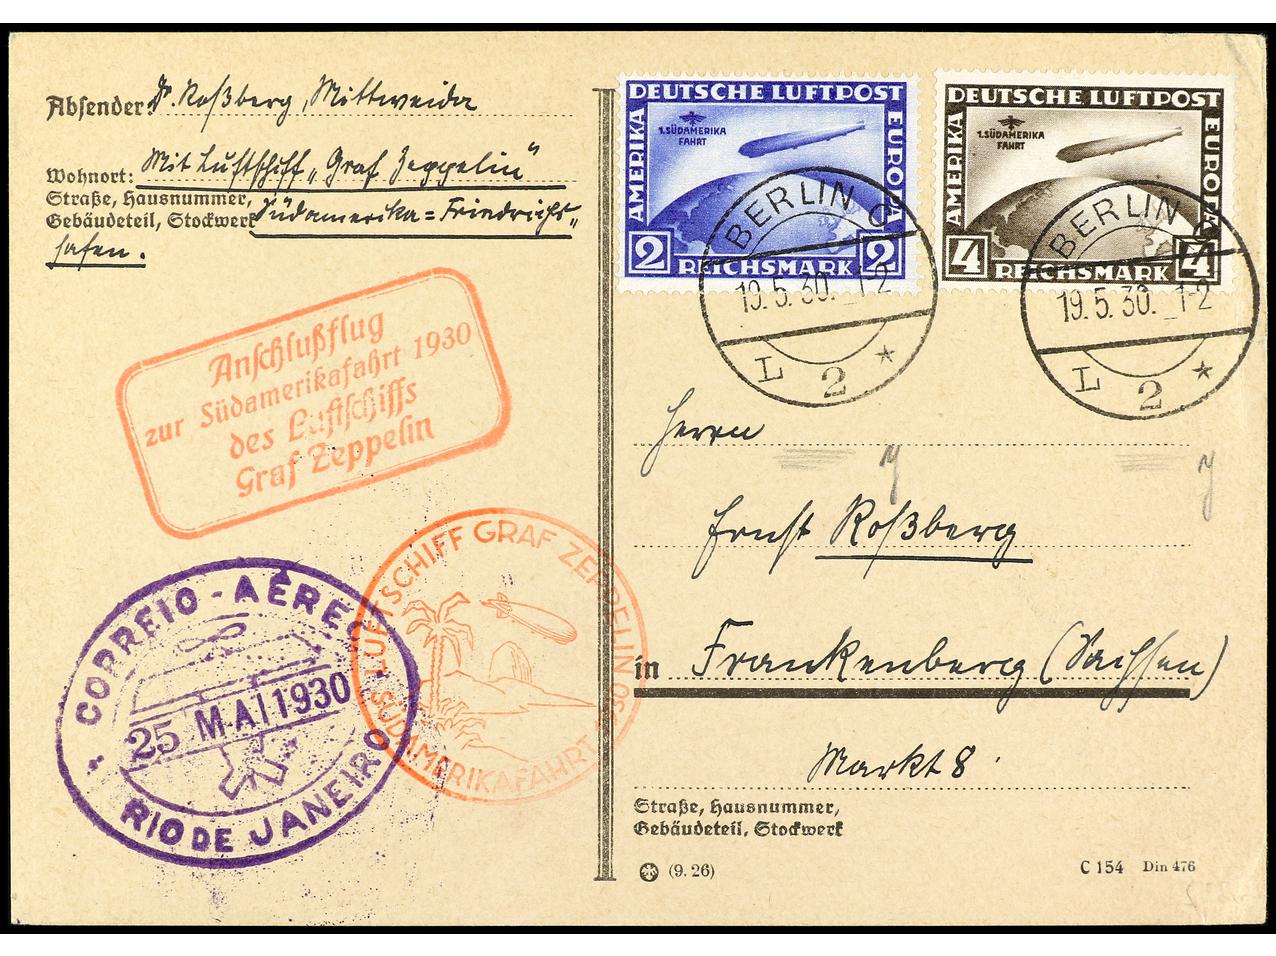 Absender: Dr. Roßberg, Mittweida
Wohnort: Mit Luftschiff „Graf Zeppelin“
Straße, Hausnummer,
Gebäudeteil, Stockwerk Südamerika=Friedrichs„
hafen.
DEUTSCHE LUFTPOST
AMERIKA
EUROPA
1.SÜDAMERIKA
FAHRT
2 REICHSMARK 2
DEUTSCHE LUFTPOST
AMERIKA
EUROPA
1.SÜDAMERIKA
FAHRT
4 REICHSMARK 4
BERLIN C
19.5.30. 1-2
L 2 *
BERLIN C
19.5.30. 1-2
L 2 *
Anschlußflug
zur Südamerikafahrt 1930
des Luftschiffs
Graf Zeppelin
LUFTSCHIFF GRAF ZEPPELIN
SÜDAMERIKAFAHRT
CORREIO-AÉREO
25 MAI 1930
RIO DE JANEIRO
Herrn
Ernst Roßberg
in Frankenberg (Sachsen)
Markt 8
Straße, Hausnummer,
Gebäudeteil, Stockwerk
(9. 26)
C 154 Din 476